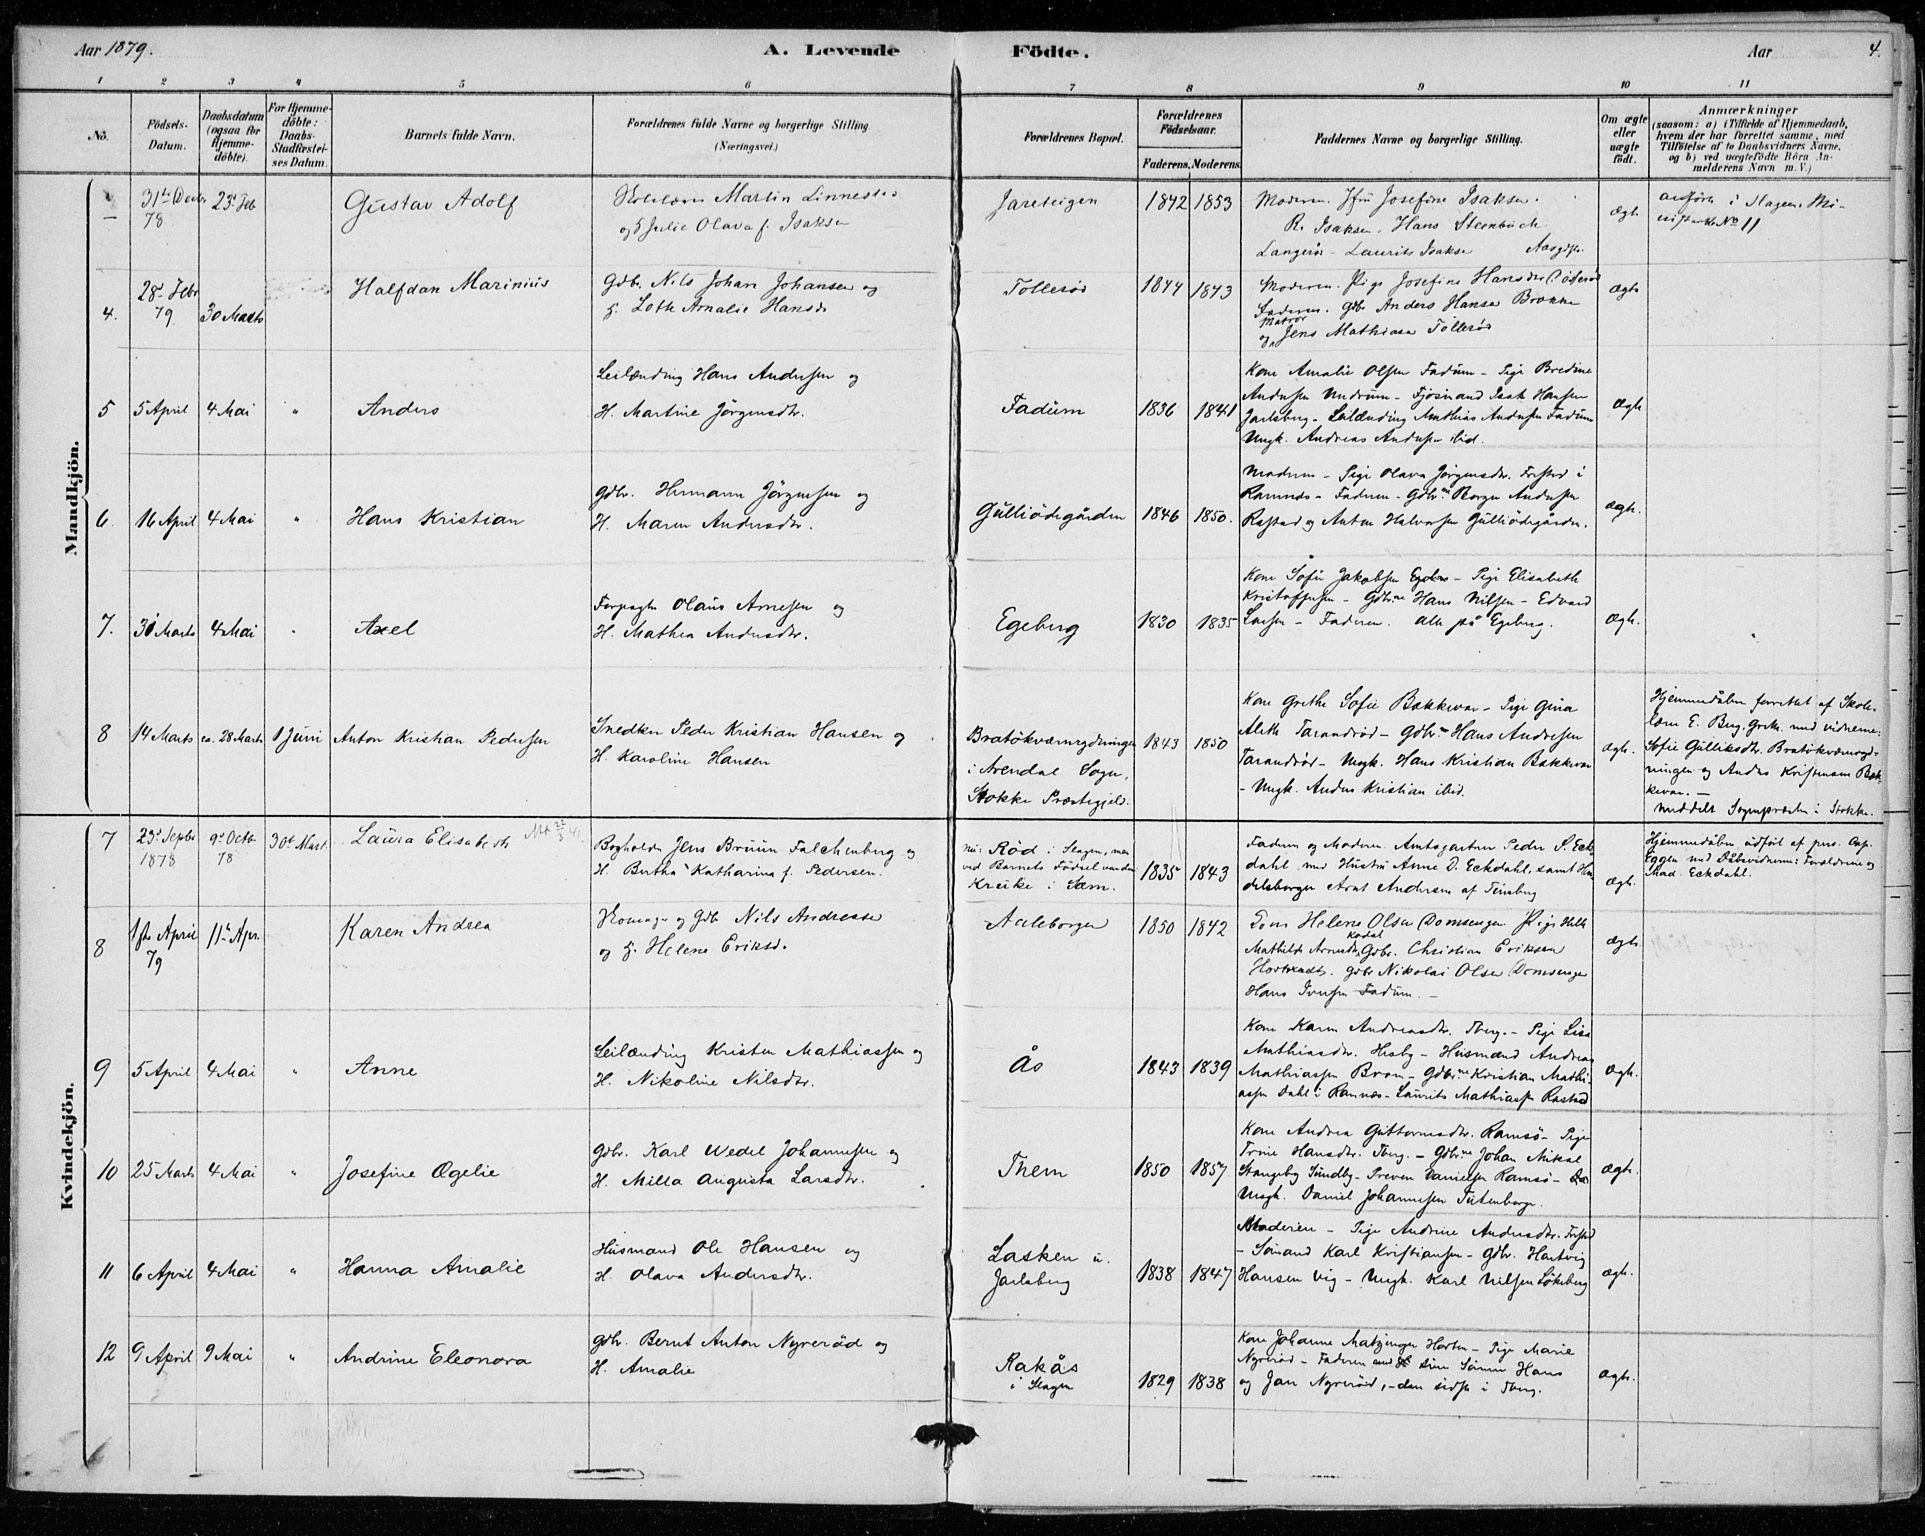 Aar 1879.
A. Levende Födte.
Aar
4.
1 2 3 4 5 6 7 8 9 10 11
No.
Födsels-Datum.
Daabsdatum (ogsaa for Hjemmedöbte).
For Hjemmedöbte: Daabs-Stadfæstelses Datum.
Barnets fulde Navn.
Forældrenes fulde Navne og borgerlige Stilling. (Næringsvei.)
Forældrenes Bopæl.
Forældrenes Födselsaar.
Faderens. Moderens.
Faddernes Navne og borgerlige Stilling.
Om ægte eller uægte födt.
Anmærkninger
(saasom: a) i Tilfælde af Hjemmedaab,
hvem der har forrettet samme, med
Tilföielse af to Daabsvidners Navne,
og b) ved uægtefödte Börn An-
melderens Navn m. V.)
Mandkjön.
31te Decbr 78
23d Feb
Gustav Adolf
Martin Linnestad
og H. Julie Olava f. Isaksen
Jareteigen
1842 1853
Moderen. Jfru Josefine Isaksen.
R. Isaksen. Hans Steenbuch
Langerör - Laurits Isaksen
ægte
anført i Slagens Mi-
No 11
4.
28 Febr 79
30 Marts
Halfdan Marinius
Gdb. Nils Johan Johansen og
H. Lothe Amalie Hansdr
Tollerød
1844 1843
Moderen. Pige Josefine Hansdr
Faderen. Gdb Anders Hansen Brekke
Matros
og Jens Mathiasen Tollerød
ægte
5
5 April
4 Mai
"
Anders
Leilænding Hans Andersen og
H. Martine Jörgensdtr.
Fadum
1836 1841
Kone Amalie Olsen Fadum - Pige Bredine
Andersen Undrum - Fjösmand Isak Hansen
Jarlsberg - Leilænding Mathias Andersen Fadum
Ungk. Andreas Andersen ibid.
ægte
6.
16 April
4 Mai
"
Hans Kristian
Gdbr. Hermann Jörgensen og
H. Maren Andersdtr.
Gulliödegården
1846 1850.
Moderen - Pige Olava Jörgensdtr. Frestad i
Ramnes - Faderen - Gdbr.ne Borger Andersen
Rastad og Anton Halvorsen Gulliödegården.
ægte.
7.
31 Marts
4 Mai
"
Axel
Forpagter Olaus Arnesen og
H. Mathea Andersdtr.
Egeberg
1830 1835
Kone Sofie Jakobsen Egeberg - Pige Elisabeth
Kristoffersen - Gdbr.ne Hans Nilsen - Edvard
Larsen - Faderen. alle på Egeberg.
ægte.
8
14 Marts
ca. 28 Marts
1 Juni
Anton Kristian Pedersen
Snedker Peder Kristian Hansen og
H. Karoline Hansen
Bratökværnrydningen
i Arendal Sogn,
Stokke Præstegjeld.
1843 1850
Kone Grethe Sofie Bakkevar - Pige Gina
Alethe Tarandröd - Gdbr.ne Hans Andersen
Tarandröd - Ungk. Hans Kristian Bakkevar
- Ungk. Anders Kristian ibid.
ægte.
Hjemmedåben forrettet af Skole-
lærer E. Berg. Grethe med vidnerne:
Sofie Gulliksdtr. Bratökværnryd-
ningen og Anders Kristensen Bak-
kevar. -
meddelt Sognepræsten i Stokke.
Kvindekjön.
7
23d Septbr 1878
9d Octb 78
30te Mart
Laura Elisabeth
Bogholder Jens Bruun Falchenberg og
H. Bertha Katharina f. Pedersen.
nu: Rød i Slagen, men
ved Barnets Födsel
Kreike i Sem.
1835 1843
Faderen og Moderen. Amtsgartner Peder S. Eck-
dahl med Hustru Anne D. Eckdahl, samt Han-
delsborger Arnt Andersen af Tönsberg
ægte.
Hjemmedåben udført af pers. Cap.
Eggen med Dåbsvidnerne: Forældrene og
Mad. Eckdahl.
8
1ste April 79
11te Apr.
Karen Andrea
og Gdb Nils Andersen
og H. Helene Eriksd.
Aaleborgen
1850 1842
Kone Helene Olsen Domsengen Pige Helle
Mathilde Kodal Gdbr. Christian Eriksen
Gdbr Nikolai Olsen Domsengen
Hans Iversen Fadum. -
ægte
9
5 April
4 Mai
"
Anne
Leilænding Kristen Mathiassen og
H. Nikoline Nilsdtr.
Ås
1843 1839
Kone Karen Andreasdtr. Tberg. - Pige Lisa
Mathiasdtr. Hesby - Husmand Andreas
Mathiassen Bron - Gdbr.ne Kristian Mathi-
assen Dahl i Ramnes - Laurits Mathiassen Rastad
ægte.
10
25 Marts
4 Mai
"
Josefine Ogelie
Gdbr. Karl Wedel Johannesen og
H. Milla Augusta Larsdtr.
Them
1850 1857
Kone Andrea Guttormsdtr. Ramsö - Pige
Trine Hansdtr. Tberg. - Gdbr.ne Johan Mikal
Stangeby Sundby - Preven Danielsen Ramsö -
Ungk. Daniel Johannesen Tutenberg.
ægte.
11
6 April
4 Mai
"
Hanna Amalie
Husmand Ole Hansen og
H. Olava Andersdtr.
Lasken u.
Jarlsberg
1838 1847
Moderen - Pige Andrine Andersdtr. Frestad
- Sömand Karl Kristiansen - Gdbr. Hartvig
Hansen Vig - Ungk. Karl Nilsen Lökeberg
ægte.
12
9 April
9 Mai
"
Andrine Eleonora
Gdbr. Bernt Anton Nyreröd og
H. Amalie
Rakås
i Slagen
1829 1838
Kone Johanne Matzinger Horten - Pige Marie
Nyreröd - Faderen med sine Sönner Hans
og Jan Nyreröd, - den sidste i Tberg.
ægte.